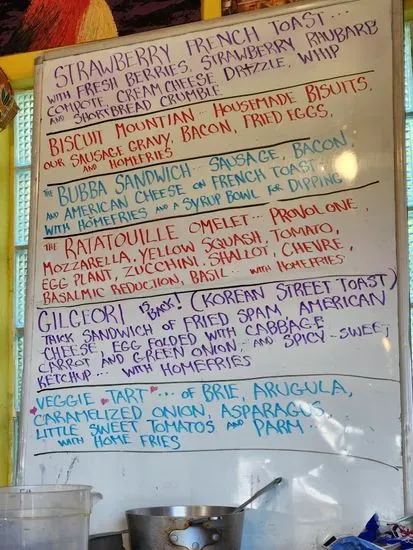 STRAWBERRY FRENCH TOAST...
WITH FRESH BERRIES, STRAWBERRY RHUBARB
COMPOTE, CREAM CHEESE DRIZZLE, WHIP
AND SHORTBREAD CRUMBLE
BISCUIT MOUNTIAN... HOUSEMADE BISUITS,
OUR SAUSAGE GRAVY, BACON, FRIED EGGS,
AND HOMEFRIES
THE BUBBA SANDWICH... SAUSAGE, BACON,
AND AMERICAN CHEESE ON FRENCH TOAST...
WITH HOMEFRIES AND A SYRUP BOWL FOR DIPPING
THE RATATOUILLE OMELET... PROVOLONE,
MOZZARELLA, YELLOW SQUASH, TOMATO,
EGG PLANT, ZUCCHINI, SHALLOT, CHEVRE,
BASALMIC REDUCTION, BASIL... WITH HOMEFRIES
GILGEORI IS BACK! (KOREAN STREET TOAST)
THICK SANDWICH OF FRIED SPAM, AMERICAN
CHEESE, EGG FOLDED WITH CABBAGE
CARROT AND GREEN ONION... AND SPICY-SWEET
KETCHUP... WITH HOMEFRIES
VEGGIE TART... OF BRIE, ARUGULA,
CARAMELIZED ONION, ASPARAGUS,
LITTLE SWEET TOMATOS AND PARM...
WITH HOME FRIES